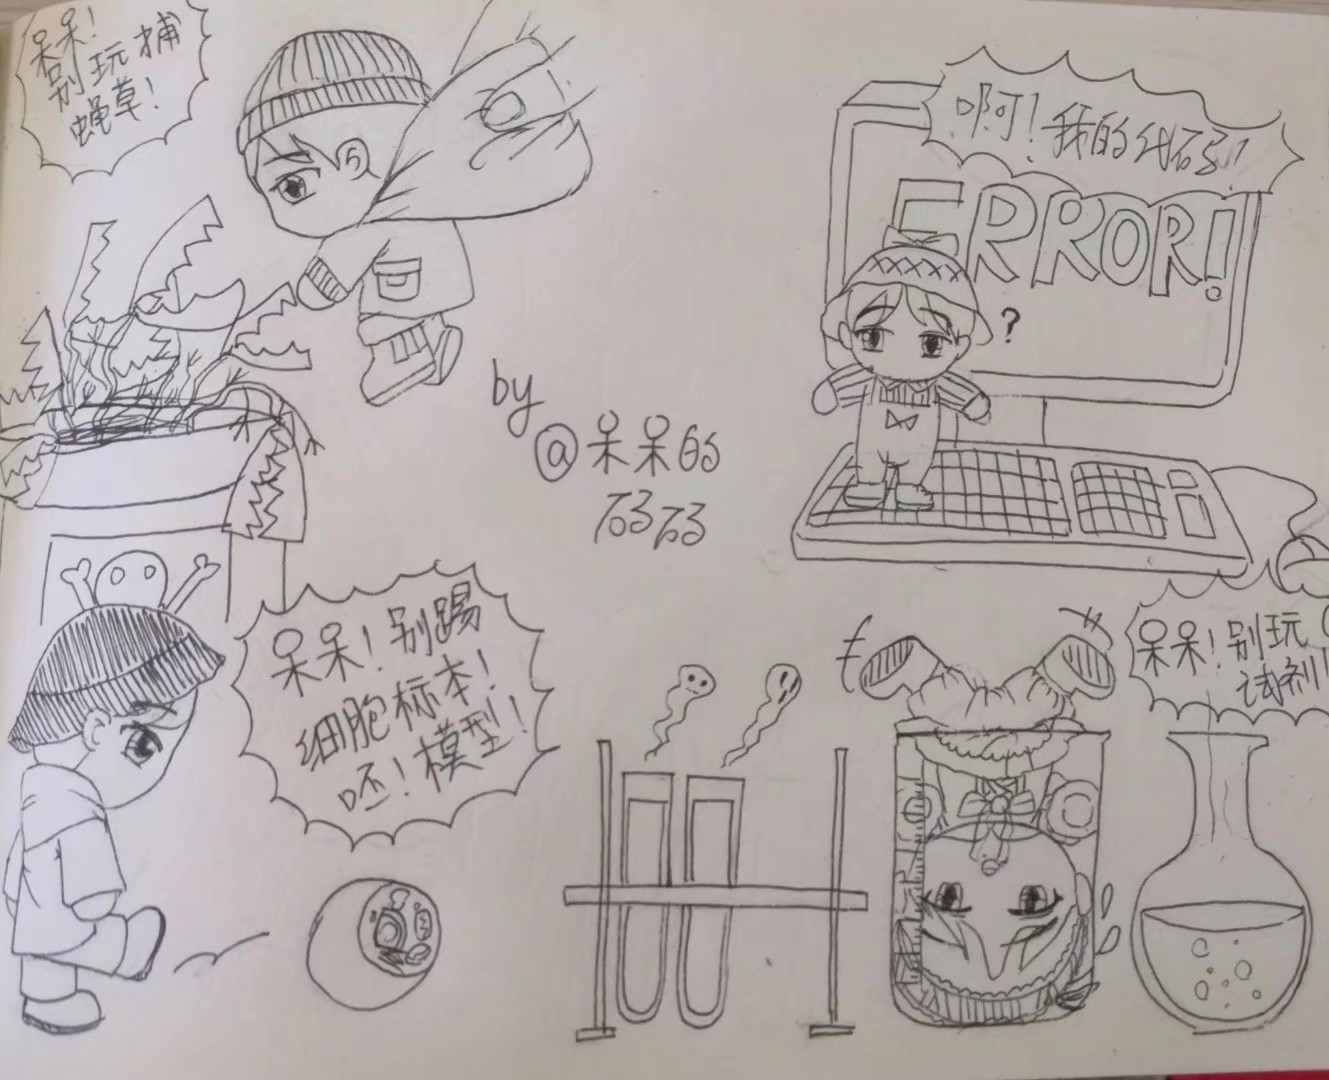 呆呆!
别玩捕
蝇草!
啊!我的代码!
ERROR!
?
by
@呆呆的
码码
呆呆!别踢
细胞标本!
呸!模型!
呆呆!别玩
试剂!